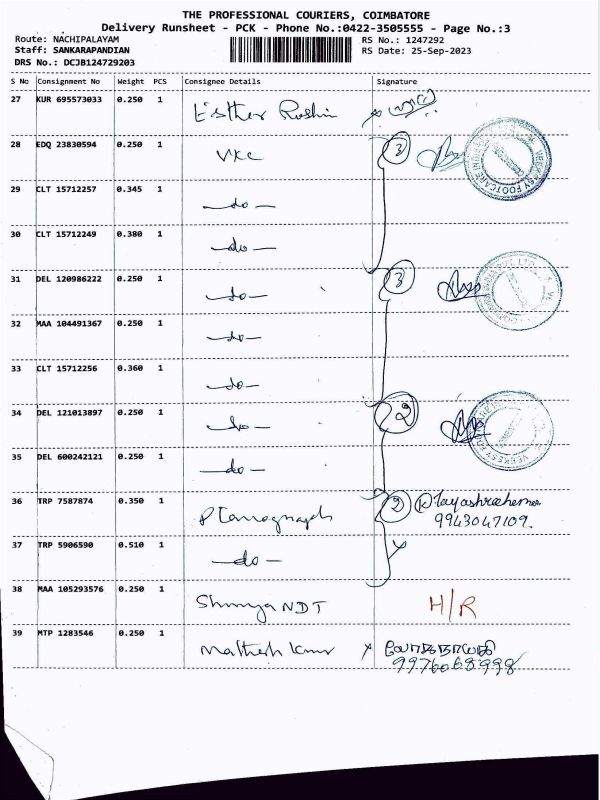 THE PROFESSIONAL COURIERS, COIMBATORE
Delivery Runsheet - PCK - Phone No.:0422-3505555 - Page No.:3
Route: NACHIPALAYAM RS No.: 1247292
Staff: SANKARAPANDIAN RS Date: 25-Sep-2023
DRS No.: DCJB124729203
S No Consignment No Weight PCS Consignee Details Signature
27 KUR 695573033 0.250 1 Esther Roshin
28 EDQ 23830594 0.250 1 VKC 3
29 CLT 15712257 0.345 1 -do-
30 CLT 15712249 0.380 1 -do-
31 DEL 120986222 0.250 1 -do- 3
32 MAA 104491367 0.250 1 -do-
33 CLT 15712256 0.360 1 -do-
34 DEL 121013897 0.250 1 -do- 2
35 DEL 600242121 0.250 1 -do-
36 TRP 7587874 0.350 1 2
9943047109
37 TRP 5906590 0.510 1 -do-
38 MAA 105293576 0.250 1 NDT H/R
39 MTP 1283546 0.250 1
9976068998